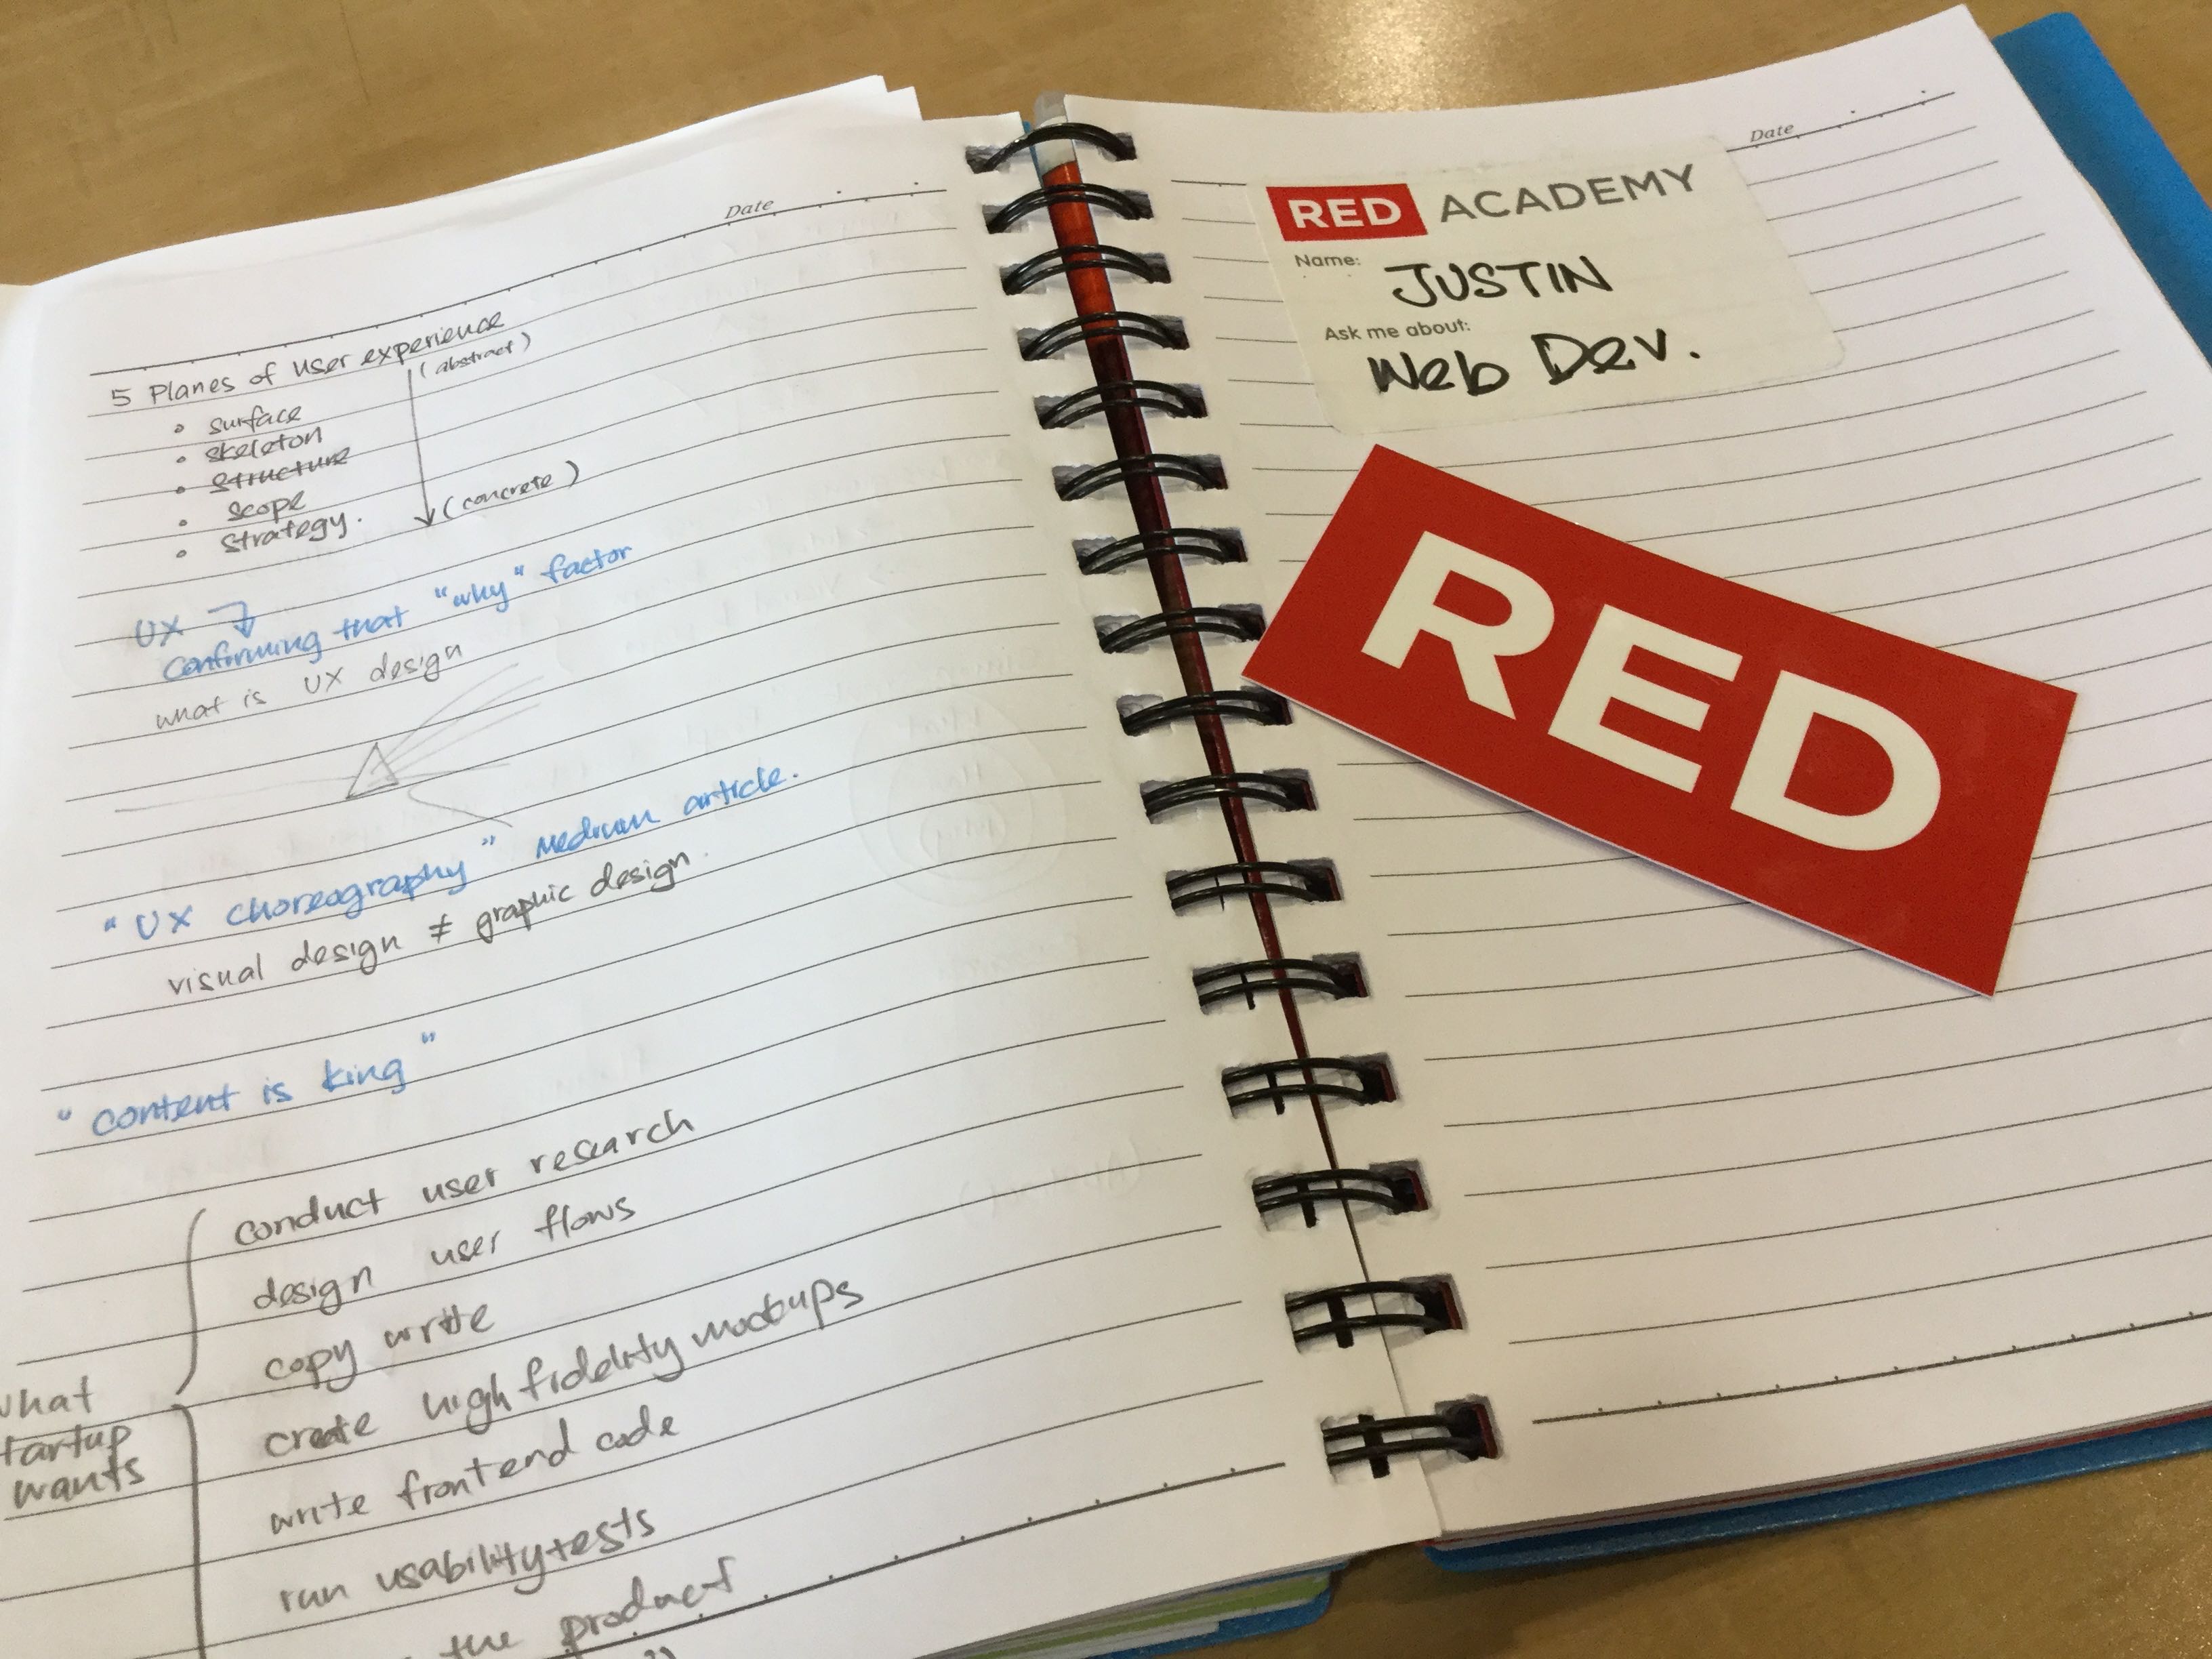 Date
5 Planes of user experience
(abstract)
• surface
• skeleton
• structure
• scope
• strategy.
(concrete)
UX
confirming that "why" factor
what is UX design
"UX choreography" Medium article.
visual design ≠ graphic design.
"content is king"
conduct user research
design user flows
copy write
create high fidelity mockups
write frontend code
run usability tests
the product
what
startup
wants
Date
RED ACADEMY
Name:
JUSTIN
Ask me about:
Web Dev.
RED